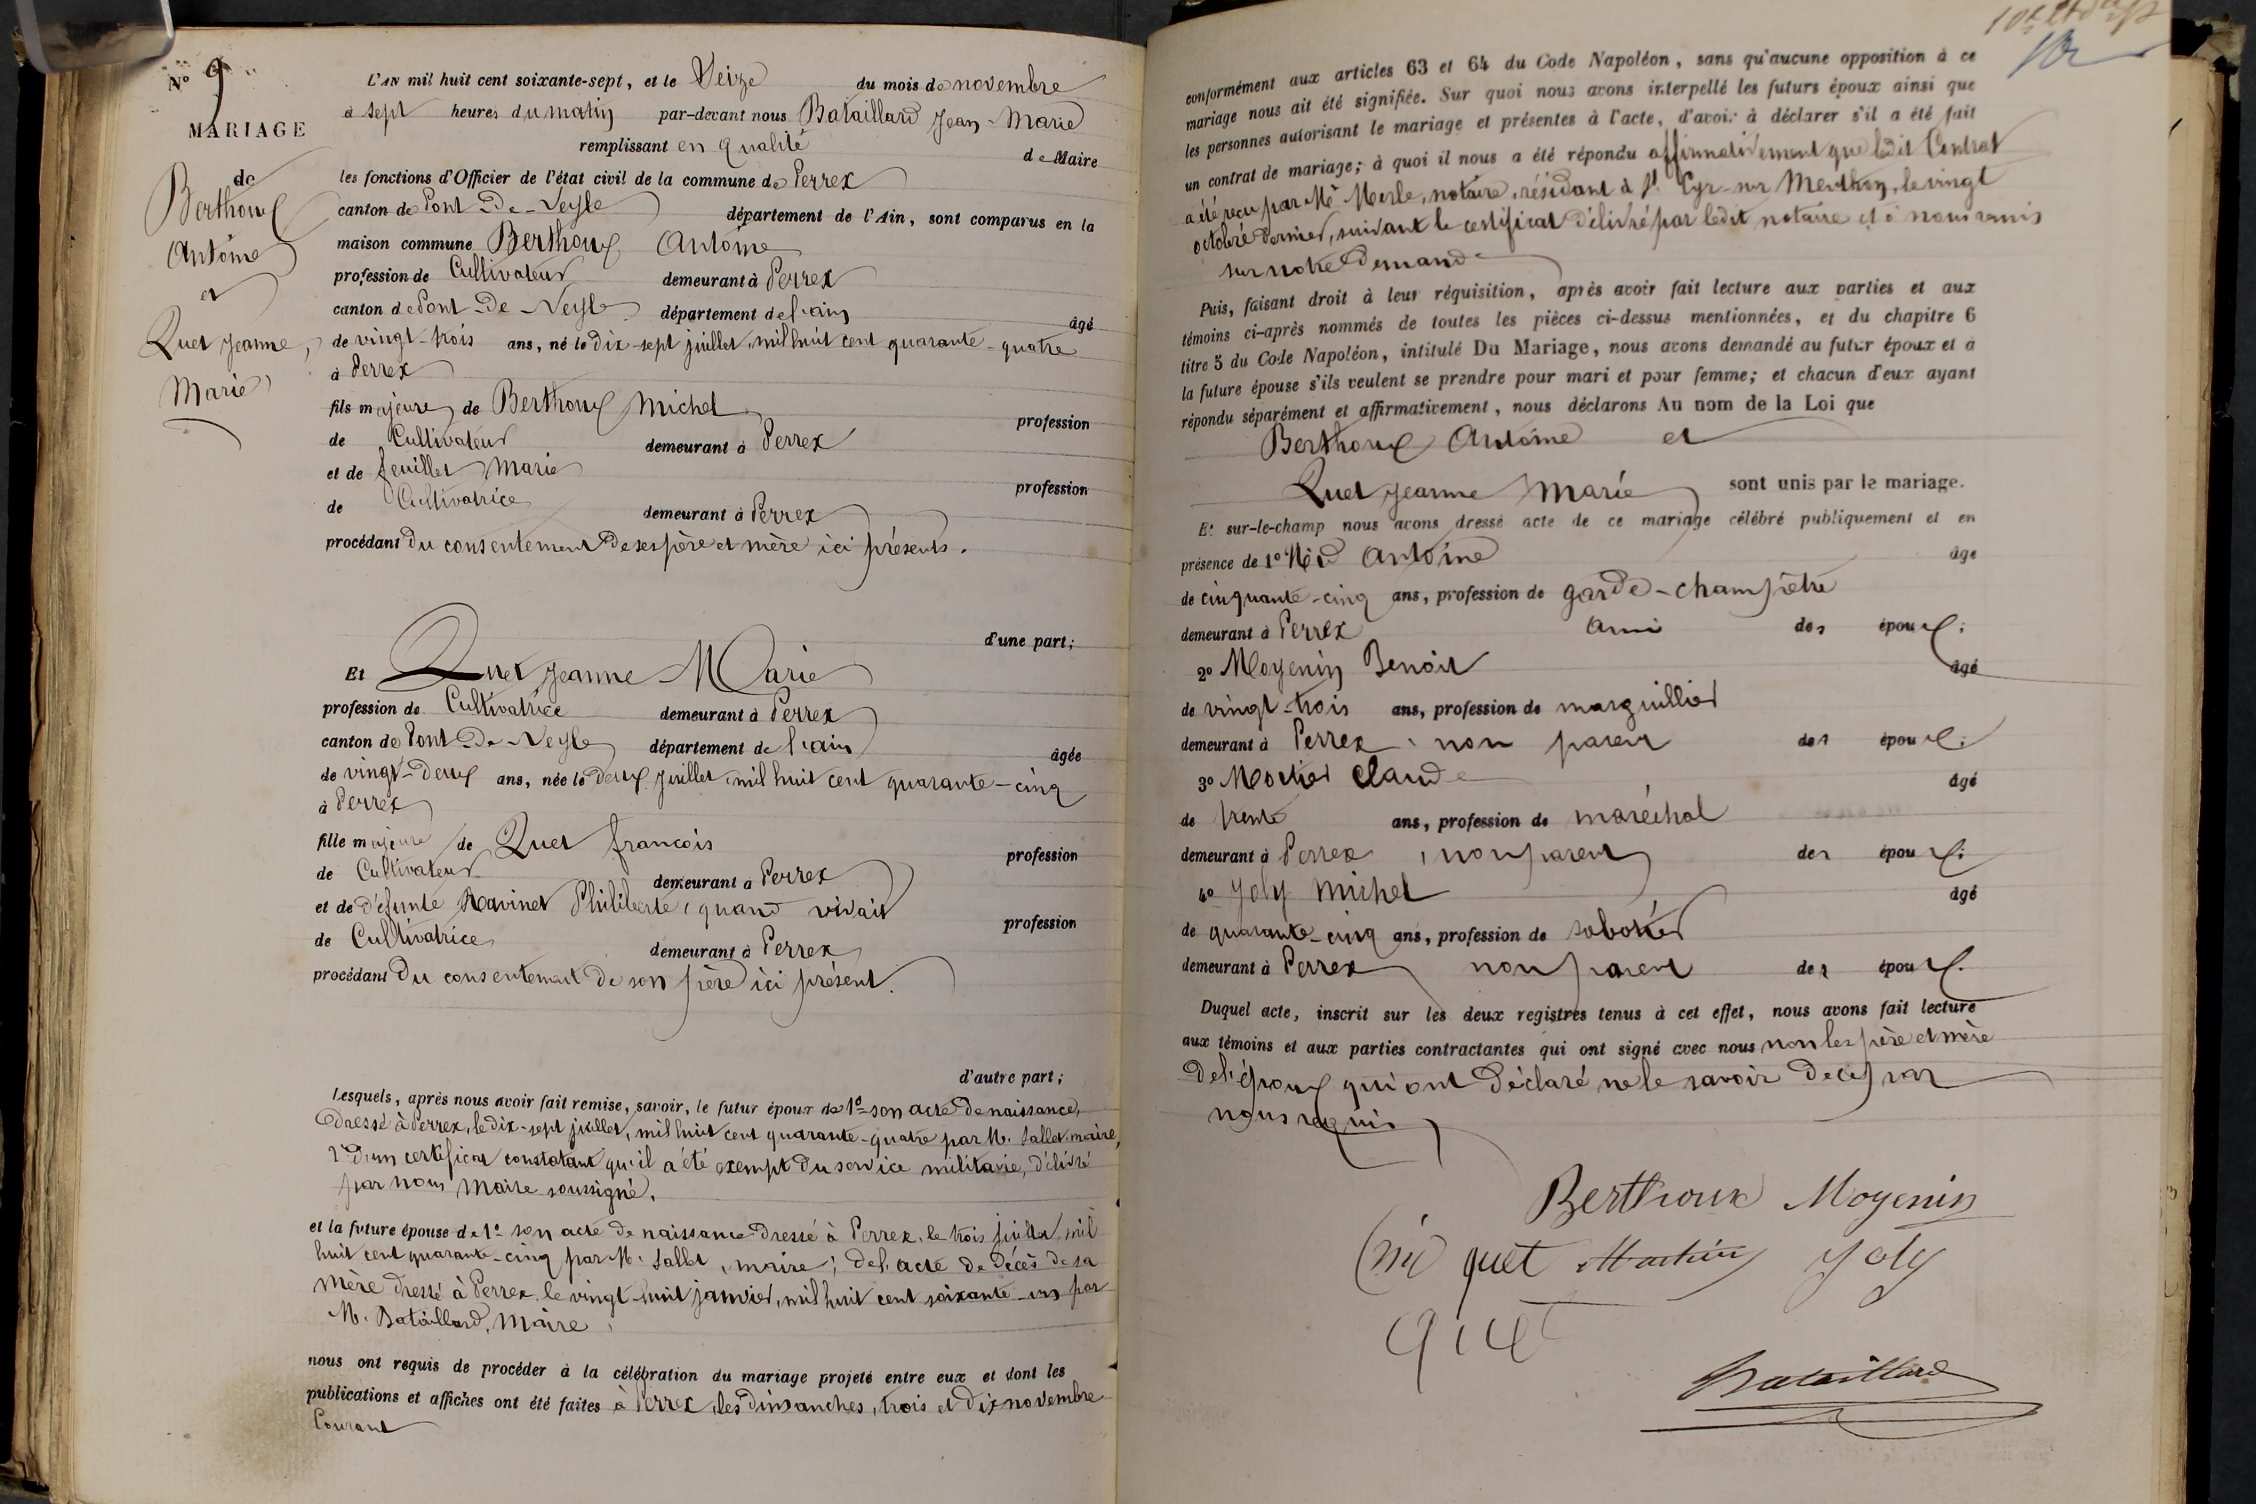 N° 9
MARIAGE
de
Berthoux
Antoine
et
Quet Jeanne
Marie
L'AN mil huit cent soixante-sept, et le Seize du mois de novembre
à sept heures du matin par-devant nous Bataillard Jean-Marie
remplissant en qualité de Maire
les fonctions d'Officier de l'état civil de la commune de Perrex
canton de Pont-De-Veyle département de l'Ain, sont comparus en la
maison commune Berthoux Antoine
profession de Cultivateur demeurant à Perrex
canton de Pont-De-Veyle département de l'ain âgé
de vingt-trois ans, né le dix-sept juillet, mil huit cent quarante-quatre
à Perrex
fils majeur de Berthoux Michel profession
de Cultivateur demeurant à Perrex
et de feuillet Marie profession
de Cultivatrice demeurant à Perrex
procédant du consentement de ses père et mère ici présents.
d'une part;
Et Quet Jeanne-Marie
profession de Cultivatrice demeurant à Perrex
canton de Pont-De-Veyle département de l'ain âgée
de vingt-deux ans, née le deux juillet mil huit cent quarante-cinq
à Perrex
fille majeure de Quet françois profession
de Cultivateur demeurant à Perrex
et de défunte Ravinet Philiberte, quand vivait profession
de Cultivatrice demeurant à Perrex
procédant du consentement de son père ici présent.
d'autre part;
Lesquels, après nous avoir fait remise, savoir, le futur époux de 1° son acte de naissance,
dressé à Perrex, le dix-sept juillet, mil huit cent quarante-quatre par M. Sallet maire,
2° d'un certificat constatant qu'il a été exempt du service militaire, délivré
par nous Maire soussigné,
et la future épouse de 1° son acte de naissance dressé à Perrex, le trois juillet, mil
huit cent quarante-cinq par M. Sallet, maire; de l'acte de décès de sa
mère dressé à Perrex, le vingt-huit janvier, mil huit cent soixante-un par
M. Bataillard, Maire,
nous ont requis de procéder à la célébration du mariage projeté entre eux et dont les
publications et affiches ont été faites à Perrex, les dimanches, trois et dix novembre
Courant
conformément aux articles 63 et 64 du Code Napoléon, sans qu'aucune opposition à ce
mariage nous ait été signifiée. Sur quoi nous avons interpellé les futurs époux ainsi que
les personnes autorisant le mariage et présentes à l'acte, d'avoir à déclarer s'il a été fait
un contrat de mariage; à quoi il nous a été répondu affirmativement que ledit Contrat
a été reçu par Me Merle, notaire, résidant à St Cyr-sur Menthon, le vingt
octobre dernier, suivant le certificat délivré par ledit notaire et à nous remis
sur notre demande
Puis, faisant droit à leur réquisition, après avoir fait lecture aux parties et aux
témoins ci-après nommés de toutes les pièces ci-dessus mentionnées, et du chapitre 6
titre 5 du Code Napoléon, intitulé Du Mariage, nous avons demandé au futur époux et à
la future épouse s'ils veulent se prendre pour mari et pour femme; et chacun d'eux ayant
répondu séparément et affirmativement, nous déclarons Au nom de la Loi que
Berthoux Antoine et
Quet Jeanne Marie sont unis par le mariage.
Et sur-le-champ nous avons dressé acte de ce mariage célébré publiquement et en
présence de 1° Nid Antoine âgé
de cinquante-cinq ans, profession de garde-champêtre
demeurant à Perrex ami des époux;
2° Moyenin Benoit âgé
de vingt-trois ans, profession de marguillier
demeurant à Perrex, non parent des époux;
3° Mortier Claude âgé
de trente ans, profession de maréchal
demeurant à Perrex, non parent des époux;
4° Joly Michel âgé
de quarante-cinq ans, profession de sabotier
demeurant à Perrex non parent des époux.
Duquel acte, inscrit sur les deux registres tenus à cet effet, nous avons fait lecture
aux témoins et aux parties contractantes qui ont signé avec nous non les père et mère
de l'époux qui ont déclaré ne le savoir de ce par
nous requis
Berthoux Moyenin
nid quet Joly
quet
Bataillard